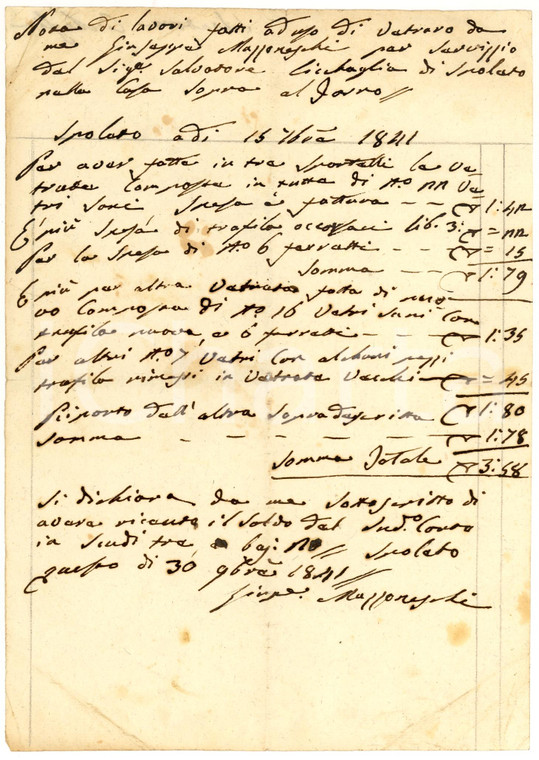 Nota di lavori fatti ad uso di Vetraro da
me Giuseppe Mazzoneschi per Servizzio
del Sig.e Salvatore di Spoleto
nella Casa Sopra al Forno //
Spoleto adi 15 7bre 1841
Per aver fatte in tre Sportelli le Ve-
trate Composte in tutto di No. 22 Ve-
tri Spesa e fattura - - 1:42
E più Spesa di trafila lib. 3: = 22
Per la Spesa di No 6 ferretti - - = 15
Somma - - 1:79
E più per altra Vetrata fatta di nuo-
vo Composta di No 16 Vetri Con
trafila nuova, e 6 ferretti - - 1:35
Per altri No 7 Vetri Con alchuni pezzi
trafila rimessi in Vetrate Vecchie = 45
1: 80
Riporto dell'altra Sopradescritta
Somma - - - - - - 1:78
Somma Totale 3:58
Si dichiara da me Sottoscritto di
avere ricevuto il Soldo del Sud.o Conto
in Scudi tre, e baj: // Spoleto
questo di 30 9bre 1841 //
Giuspe. Mazzoneschi